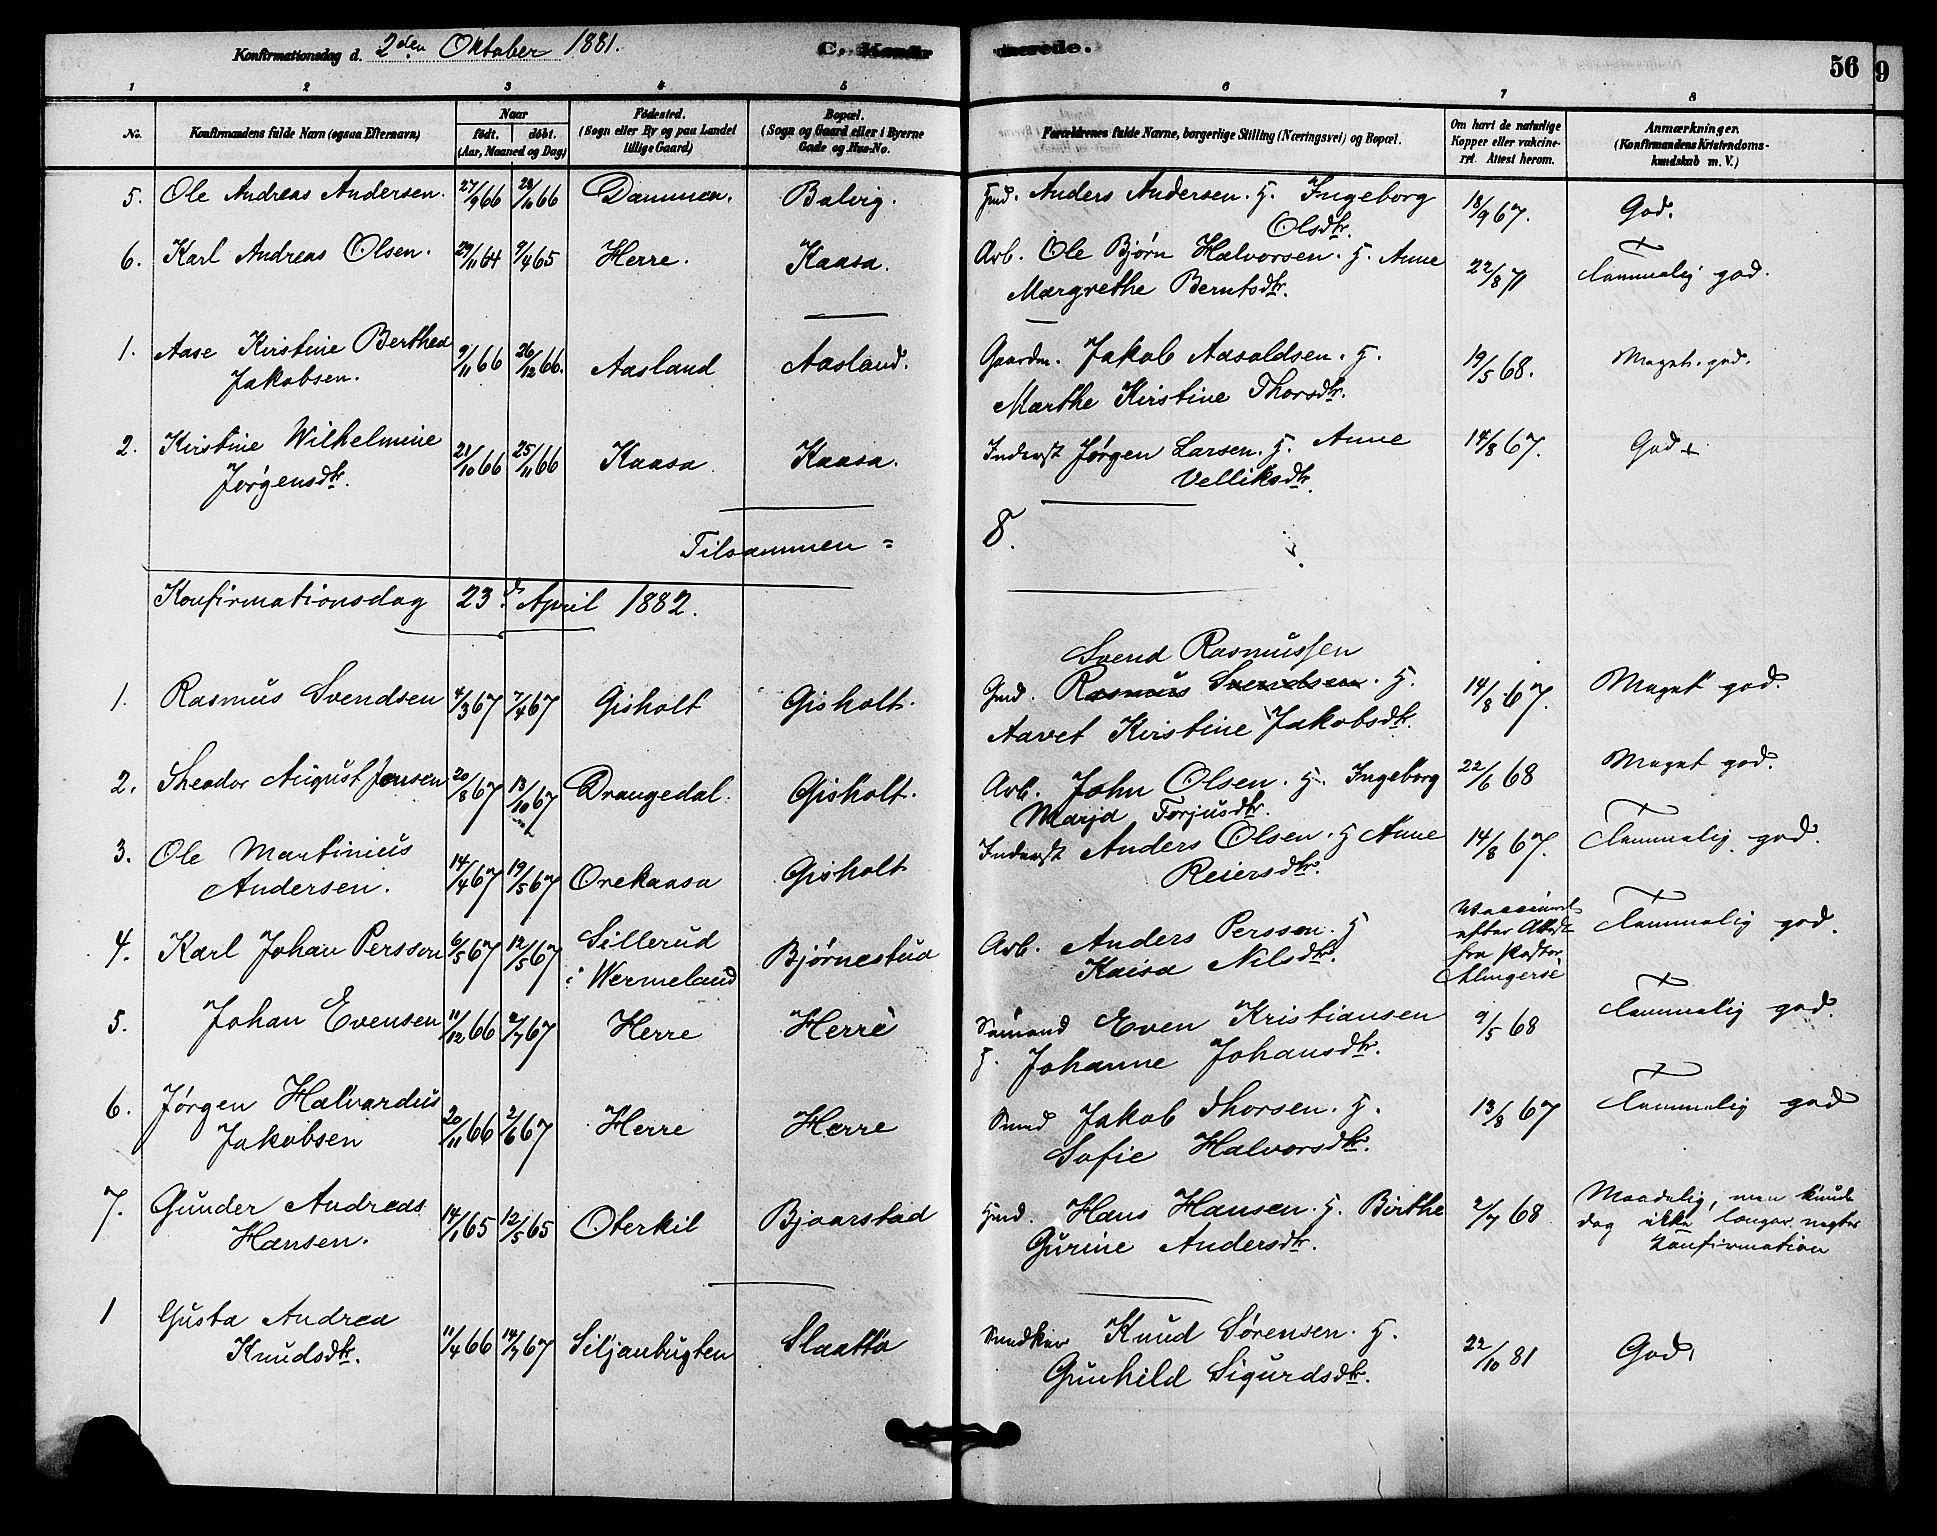 Konfirmationsdag d. 2den Oktober 1881. C. Konfir merede. 56 9
1 2 3 4 5 6 7 8
No. Konfirmandens fulde Navn (ogsaa Efternavn) Naar födt. döbt. (Aar, Maaned og Dag) Födested. (Sogn eller By og paa Landet tillige Gaard) Bopæl. (Sogn og Gaard eller i Byerne Gade og Hus-No. Forældrenes fulde Navne, borgerlige Stilling (Næringsvei) og Bopæl. Om havt de naturlige Kopper eller vakcineret. Attest herom. Anmærkninger. (Konfirmandens Kristendomskundskab m. V.)
5. Ole Andreas Andersen. 27/9 66 28/10 66 Dammen. Balvig. Hmd. Anders Andersen. H. Ingeborg 18/9 67. God.
Olsdtr.
6. Karl Andreas Olsen. 29/11 64 9/4 65 Herre. Kaasa. Arb. Ole Bjørn Halvorsen. H. Anne 22/8 71 Tammelig god.
Margrethe Berntsdtr.
1. Aase Kirstine Berthea 9/11 66 26/12 66. Aasland Aasland. Gaardm. Jakob Aasoldsen. H. 19/5 68. Meget god.
Jakobsen. Marthe Kirstine Thorsdtr.
2. Kirstine Wilhelmine 21/10 66 25/11 66 Kaasa Kaasa. Inderst Jørgen Larsen. H. Anne 14/8 67. God
Jørgensdtr. Velliksdtr.
Tilsammen = 8.
Konfirmationsdag 23d April 1882.
Svend Rasmussen
1. Rasmus Svendsen 4/3 67 7/4 67 Gisholt Gisholt. Gmd. Rasmus Svendsen. H. 14/8 67. Meget god.
Aavet Kirstine Jakobsdtr.
2. Theodor August Jensen 20/8 67 13/10 67 Drangedal. Gisholt. Arb. John Olsen. H. Ingeborg 22/6 68 Meget god.
Marja Torjusdtr.
3. Ole Martinius 14/4 67 19/5 67 Orekaasa Gisholt Inderst Anders Olsen. H Anne 14/8 67. Tammelig god.
Andersen. Reiersdtr.
4. Karl Johan Persson 6/5 67 12/5 67 Sillerud i Wermeland Bjørnestud Arb. Anders Persson. H Vaccineret efter Attest fra Pastor Tammelig god.
Kaisa Nilsdtr.
5. Johan Evensen 11/12 66 2/7 67 Herre Herre Sømand Even Kristiansen 9/5 68 Tammelig god.
H. Johanne Johansdtr.
6. Jørgen Halvardus 20/11 66 2/6 67 Herre Herre Jakob Thorsen. H. 13/8 67 Tammelig god
Jakobsen Sofie Halvorsdtr.
7. Gunder Andreas 14/1 65 12/5 65 Oterkil Bjaarstad Hmd. Hans Hansen. H. Birthe 2/7 68 Maadelig, men kunde
Hansen. Gurine Andersdtr. dog ikke længer negtes
Konfirmation
1 Gusta Andrea 11/4 66 14/7 67 Siljanbugten Slaatta Knud Sørensen. H. 22/10 81 God.
Knudsdtr. Gunhild Sigurdsdtr.